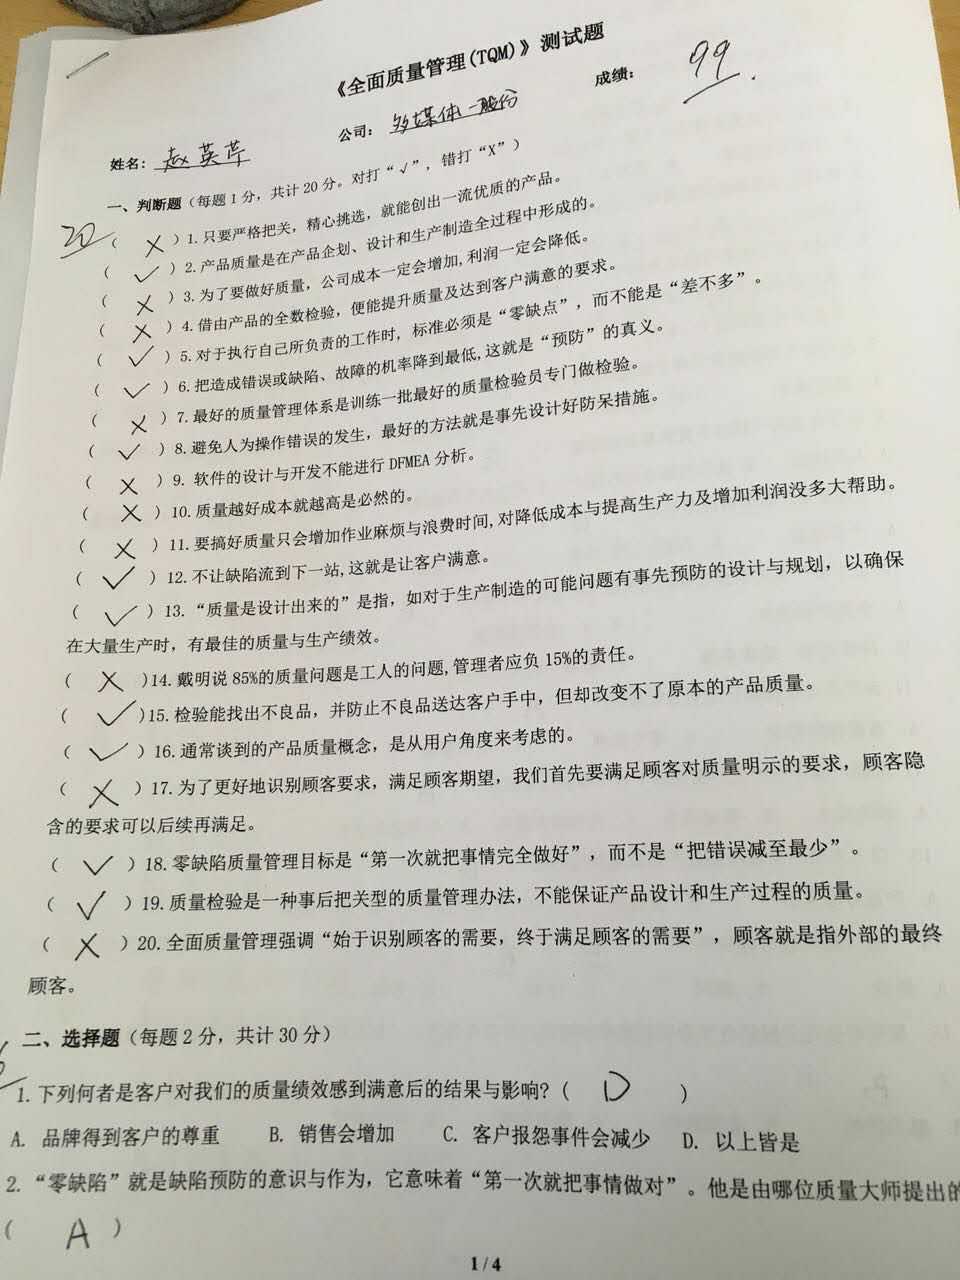 《全面质量管理(TQM)》测试题
成绩： 99
姓名：赵英萍 公司：多媒体一股份
一、判断题（每题1分，共计20分。对打“√”，错打“X”）
20
（ X ）1.只要严格把关，精心挑选，就能创出一流优质的产品。
（ √ ）2.产品质量是在产品企划、设计和生产制造全过程中形成的。
（ X ）3.为了要做好质量，公司成本一定会增加,利润一定会降低。
（ X ）4.借由产品的全数检验，便能提升质量及达到客户满意的要求。
（ √ ）5.对于执行自己所负责的工作时，标准必须是“零缺点”，而不能是“差不多”。
（ √ ）6.把造成错误或缺陷、故障的机率降到最低,这就是“预防”的真义。
（ X ）7.最好的质量管理体系是训练一批最好的质量检验员专门做检验。
（ √ ）8.避免人为操作错误的发生，最好的方法就是事先设计好防呆措施。
（ X ）9. 软件的设计与开发不能进行 DFMEA 分析。
（ X ）10.质量越好成本就越高是必然的。
（ X ）11.要搞好质量只会增加作业麻烦与浪费时间,对降低成本与提高生产力及增加利润没多大帮助。
（ √ ）12.不让缺陷流到下一站,这就是让客户满意。
（ √ ）13.“质量是设计出来的”是指，如对于生产制造的可能问题有事先预防的设计与规划，以确保
在大量生产时，有最佳的质量与生产绩效。
（ X ）14.戴明说85%的质量问题是工人的问题,管理者应负15%的责任。
（ √ ）15.检验能找出不良品，并防止不良品送达客户手中，但却改变不了原本的产品质量。
（ √ ）16.通常谈到的产品质量概念，是从用户角度来考虑的。
（ X ）17.为了更好地识别顾客要求，满足顾客期望，我们首先要满足顾客对质量明示的要求，顾客隐
含的要求可以后续再满足。
（ √ ）18.零缺陷质量管理目标是“第一次就把事情完全做好”，而不是“把错误减至最少”。
（ √ ）19.质量检验是一种事后把关型的质量管理办法，不能保证产品设计和生产过程的质量。
（ X ）20.全面质量管理强调“始于识别顾客的需要，终于满足顾客的需要”，顾客就是指外部的最终
顾客。
二、选择题（每题2分，共计30分）
1.下列何者是客户对我们的质量绩效感到满意后的结果与影响?（ D ）
A. 品牌得到客户的尊重 B. 销售会增加 C. 客户报怨事件会减少 D. 以上皆是
2.“零缺陷”就是缺陷预防的意识与作为，它意味着“第一次就把事情做对”。他是由哪位质量大师提出的
（ A ）
1 / 4